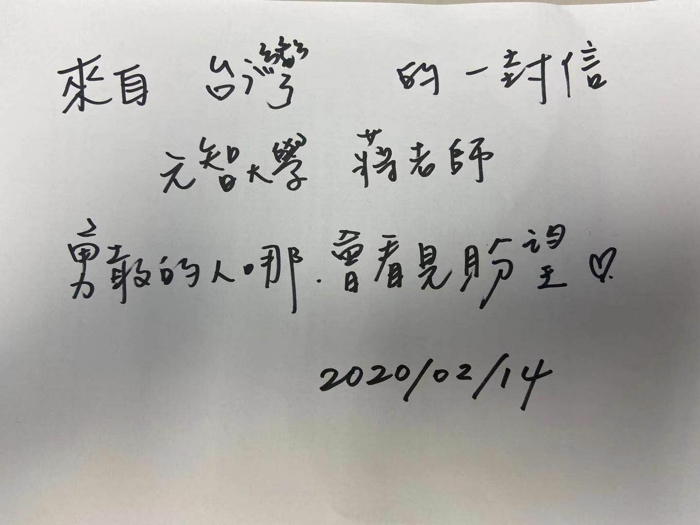 來自 台灣 的一封信
元智大學 蔣老師
勇敢的人哪.曾看見盼望♡
2020/02/14